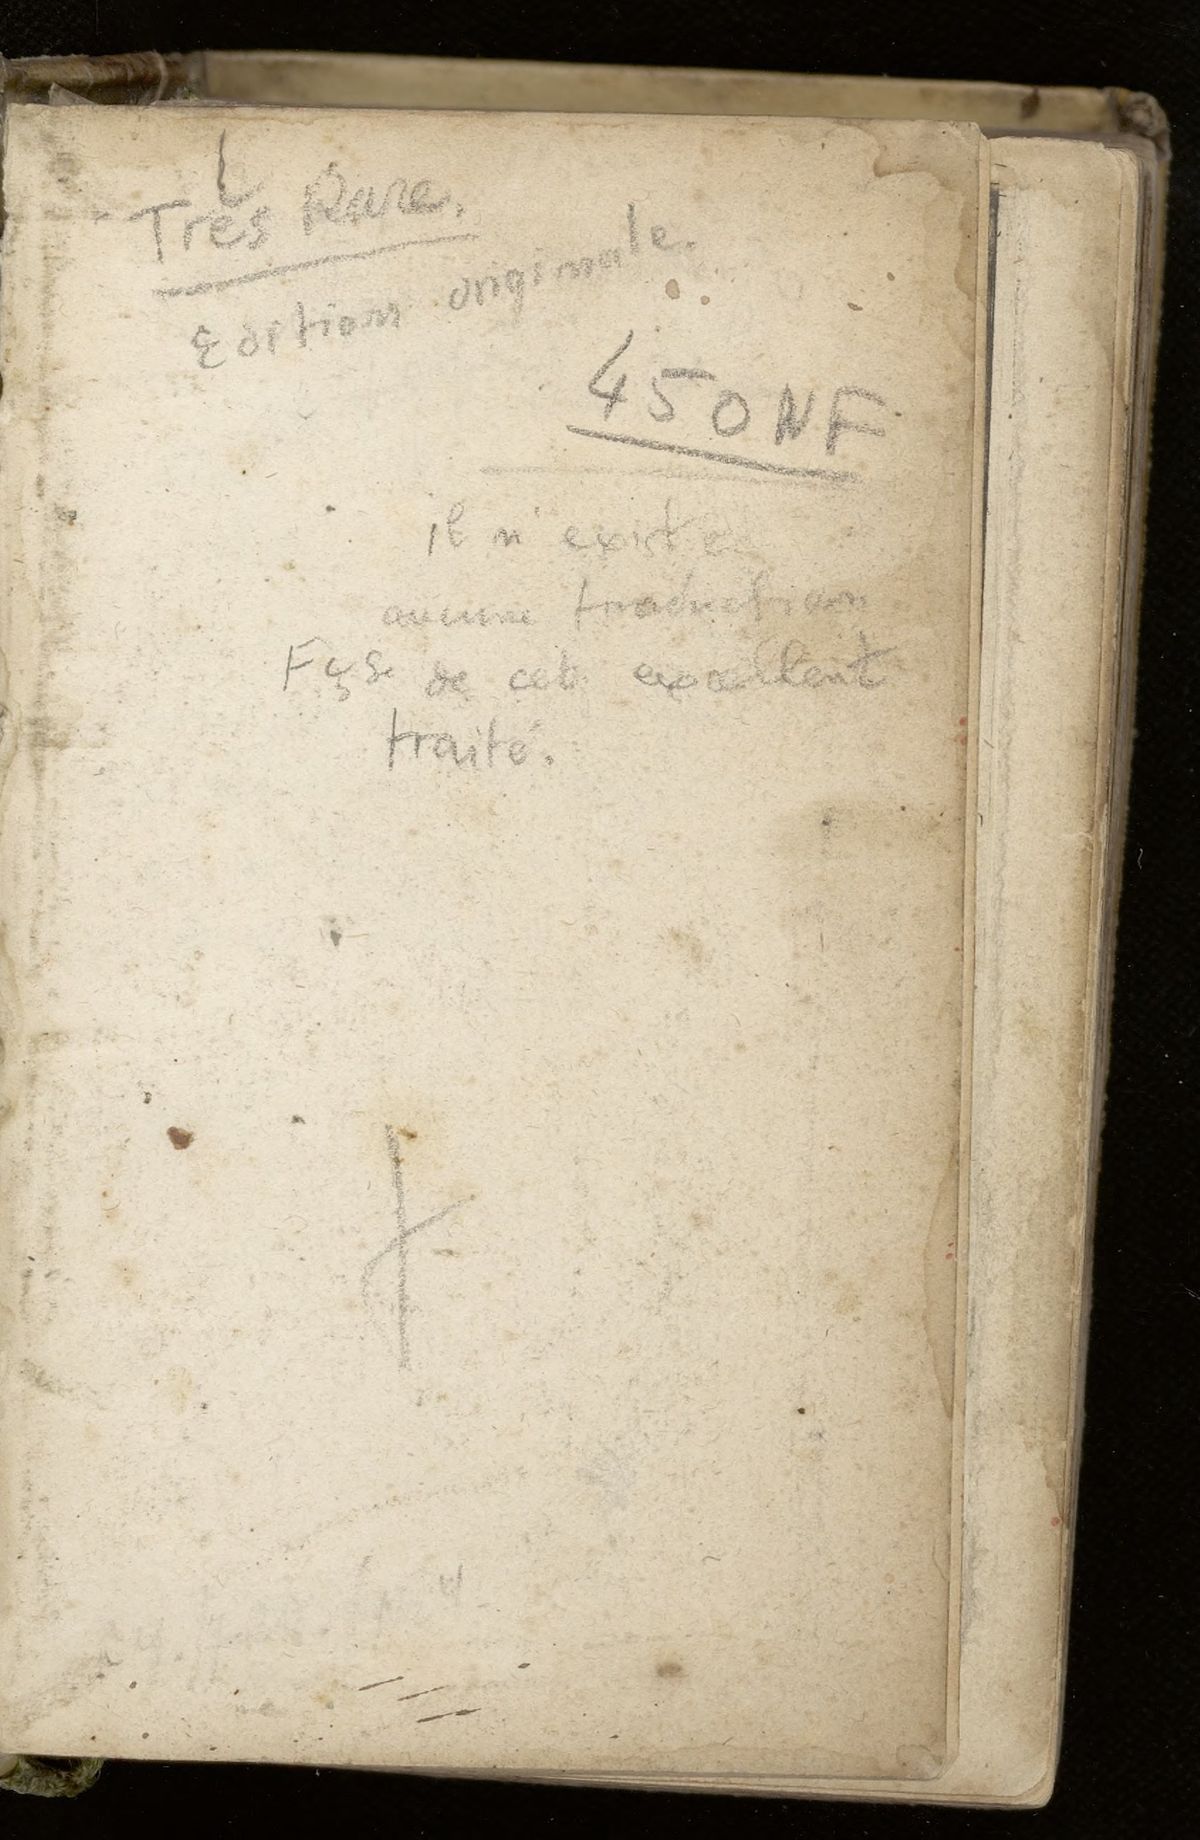 Très Rare.
Edition originale.
450 NF
il n'existe
aucune traduction
Fçse de cet excellent
traité.